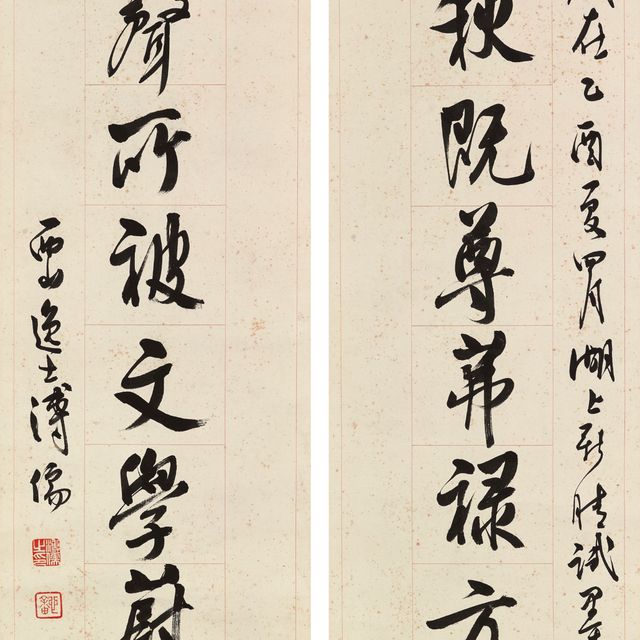 在乙酉夏四月湖上新晴識
秩既尊茀祿方
聲所被文學蔚
西山逸士溥儒